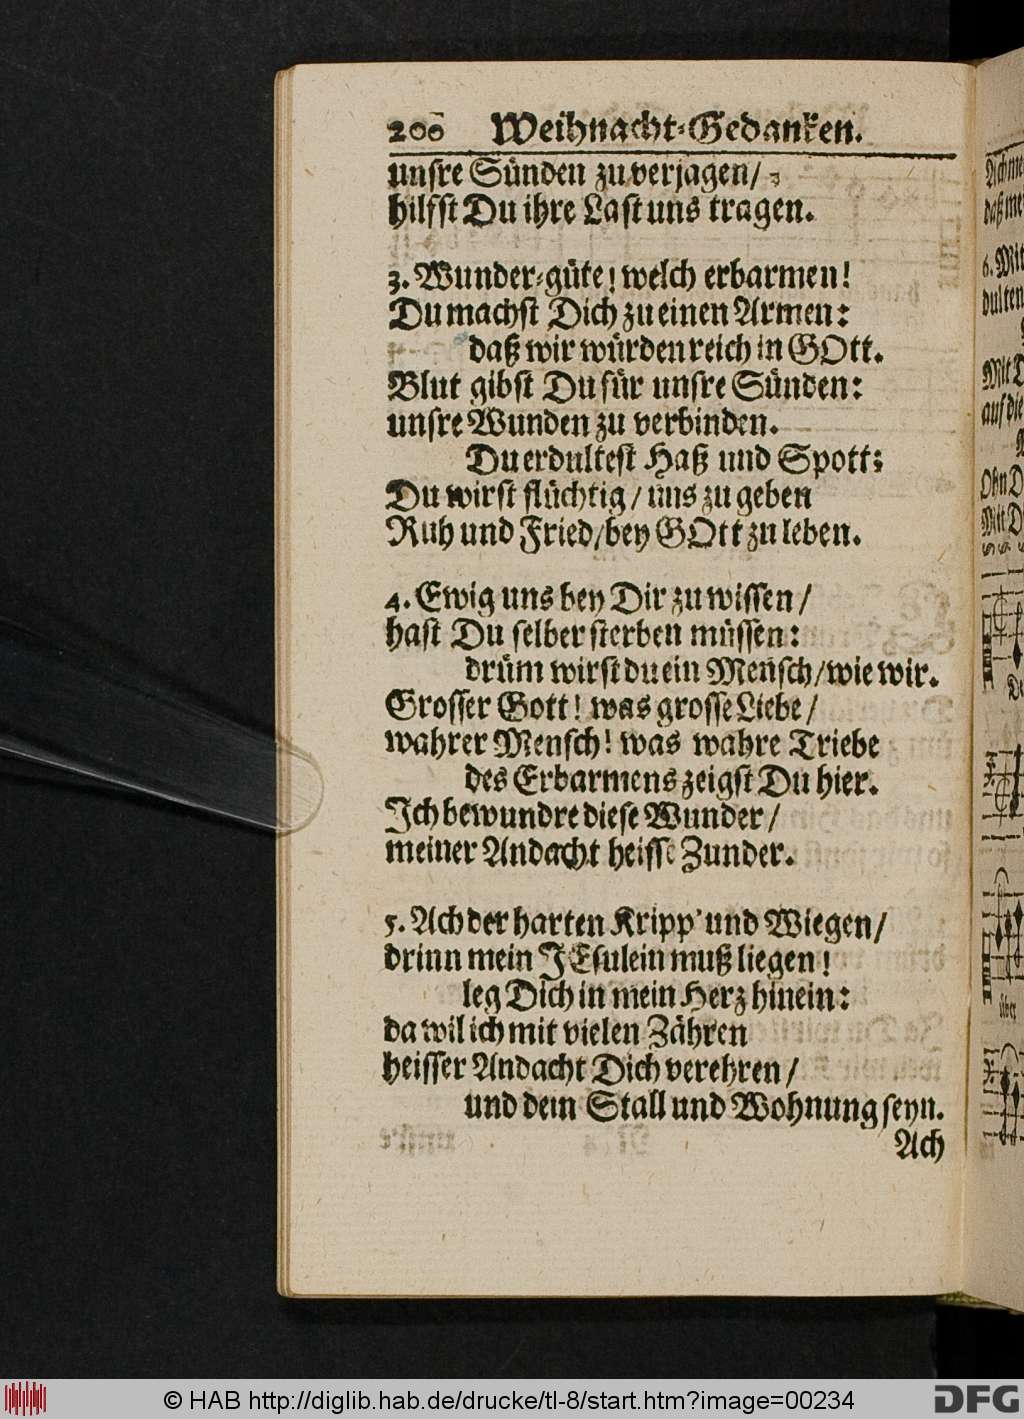 200 Weihnacht-Gedanken.
unsre Sünden zu verjagen/
hilfst Du ihre Last uns tragen.
3. Wunder-güte! welch erbarmen!
Du machst Dich zu einen Armen:
daß wir würden reich in GOtt.
Blut gibst Du für unsre Sünden:
unsre Wunden zu verbinden.
Du erdultest Haß und Spott;
Du wirst flüchtig/ uns zu geben
Ruh und Fried/ bey GOtt zu leben.
4. Ewig uns bey Dir zu wissen/
hast Du selber sterben müssen:
drüm wirst du ein Mensch/ wie wir.
Grosser Gott! was grosse Liebe/
wahrer Mensch! was wahre Triebe
des Erbarmens zeigst Du hier.
Ich bewundre diese Wunder/
meiner Andacht heisse Zunder.
5. Ach der harten Kripp' und Wiegen/
drinn mein JEsulein muß liegen!
leg Dich in mein Herz hinein:
da wil ich mit vielen Zähren
heisser Andacht Dich verehren/
und dein Stall und Wohnung seyn.
Ach
Ach
6. Mit
Mit D
auf die
Ohn D
Mit D
über
© HAB http://diglib.hab.de/drucke/tl-8/start.htm?image=00234
DFG